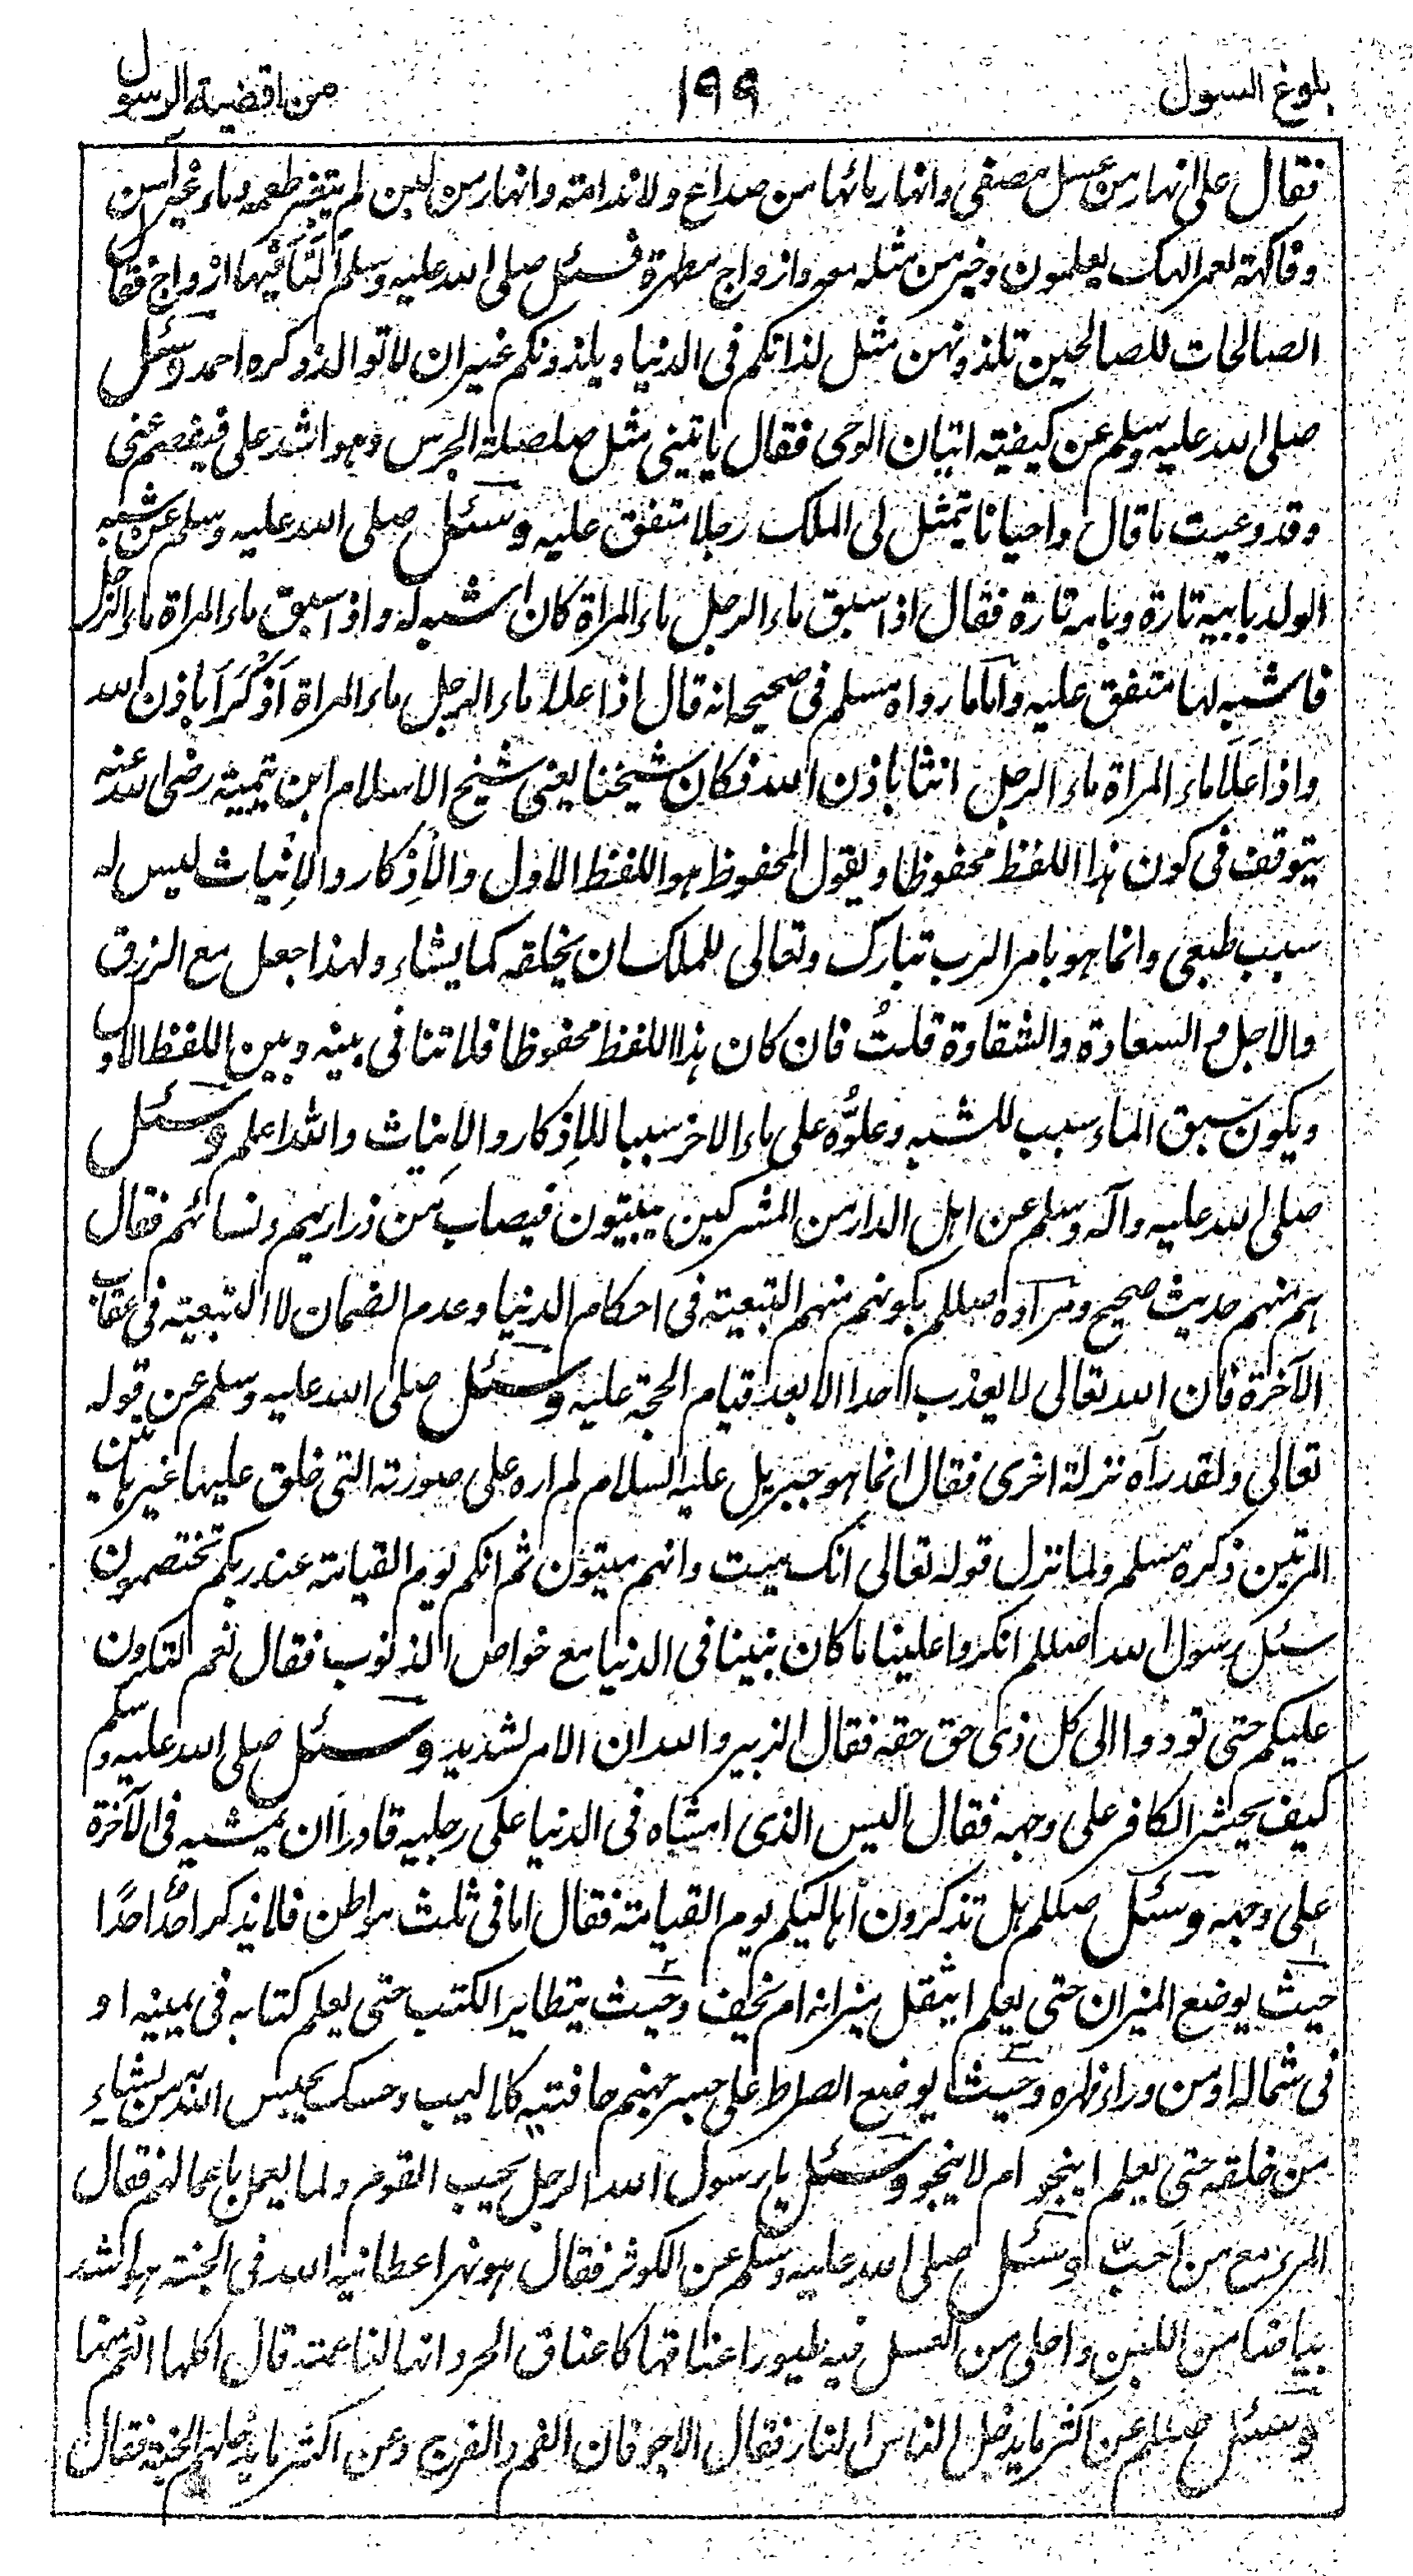 بلوغ السول
١٩٩
من اقضية الرسول
فقال على انهار من عسل مصفى وانهار ما بها من صداع ولا ندامة وانهار من لبن لم يتغير طعمه وماء غير آسن
وفاكهة لعمر الهك يعلمون وخير من مثله معه وازواج مطهرة فسئل صلى الله عليه وسلم اَلَنَا فيها ازواج فقال
الصالحات للصالحين تلذونهن مثل لذاتكم فى الدنيا ويلذذونكم غير ان لا توالد ذكره احمد وسئل
صلى الله عليه وسلم عن كيفية اتيان الوحى فقال ياتينى مثل صلصلة الجرس وهو اشد على فيفصم عنى
وقد وعيت ما قال واحيانا يتمثل لى الملك رجلا متفق عليه وسئل صلى الله عليه وسلم عن شبه
الولد بابيه تارة وبامه تارة فقال اذا سبق ماء الرجل ماء المراة كان الشبه له واذا سبق ماء المراة ماء الرجل
فالشبه لها متفق عليه واما ما رواه مسلم فى صحيحه انه قال اذا علا ماء الرجل ماء المراة اَذْكَرَا باذن الله
واذا عَلَا ماء المراة ماء الرجل انثا باذن الله فكان شيخنا يعنى شيخ الاسلام ابن تيمية رضى الله عنه
يتوقف فى كون هذا اللفظ محفوظا ويقول المحفوظ هو اللفظ الاول والاِذكار والاِيناث ليس له
سبب طبعى وانما هو بامر الرب تبارك وتعالى للملك ان يخلقه كما يشاء ولهذا جعل مع الرزق
والاجل والسعادة والشقاوة قلتُ فان كان هذا اللفظ محفوظا فلا تنافى بينه وبين اللفظ الاول
ويكون سبق الماء سبب للشبه وعلوُّه على ماء الاخر سببا للاِذكار والاِيناث والله اعلم وسئل
صلى الله عليه وآله وسلم عن اهل الدار من المشركين يبيتون فيصاب من ذراريهم ونسائهم فقال
هم منهم حديث صحيح ومراده صللم بكونهم منهم التبعية فى احكام الدنيا وعدم الضمان لا التبعية فى عقاب
الآخرة فان الله تعالى لا يعذب احدا الا بعد قيام الحجة عليه وسئل صلى الله عليه وسلم عن قوله
تعالى ولقد رآه نزلة اخرى فقال انما هو جبريل عليه السلام لم اره على صورته التى خلق عليها غير هاتين
المرتين ذكره مسلم ولما نزل قوله تعالى انك ميت وانهم ميتون ثم انكم يوم القيامة عند ربكم تختصمون
سئل رسول الله صللم انكروا علينا ما كان بيننا فى الدنيا مع خواص الذنوب فقال نعم لتكررن
عليكم حتى تودوا الى كل ذى حق حقه فقال الزبير والله ان الامر لشديد وسئل صلى الله عليه وسلم
كيف يحشر الكافر على وجهه فقال اليس الذى امشاه فى الدنيا على رجليه قادرا ان يمشيه فى الآخرة
على وجهه وسئل صللم هل تذكرون اهاليكم يوم القيامة فقال اما فى ثلث مواطن فلا يذكر احدٌ احدًا
حيث يوضع الميزان حتى يعلم ايثقل ميزانه ام يخف وحيث يتطاير الكتب حتى يعلم كتابه فى يمينه او
فى شماله او من وراء ظهره وحيث يوضع الصراط على جسر جهنم حافتيه كلاليب وحسك يحبس الله من يشاء
من خلقه حتى يعلم اينجو ام لا ينجو وسئل يا رسول الله الرجل يحب القوم ولما يعمل باعمالهم فقال
المرء مع من اَحبّ وسئل صلى الله عليه وسلم عن الكوثر فقال هو نهر اعطانيه الله فى الجنة هو اشد
بياضا من اللبن واحلى من العسل فيه طيور اعناقها كاعناق الجزر وانها لناعمة قال اكلها انعم منها
وسئل صللم عن اكثر ما يدخل الناس النار فقال الاجوفان الفم والفرج وعن اكثر ما يدخلهم الجنة فقال